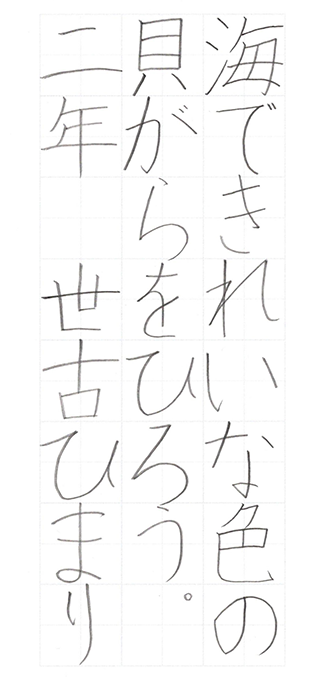 海できれいな色の
貝がらをひろう。
二年 世古ひまり